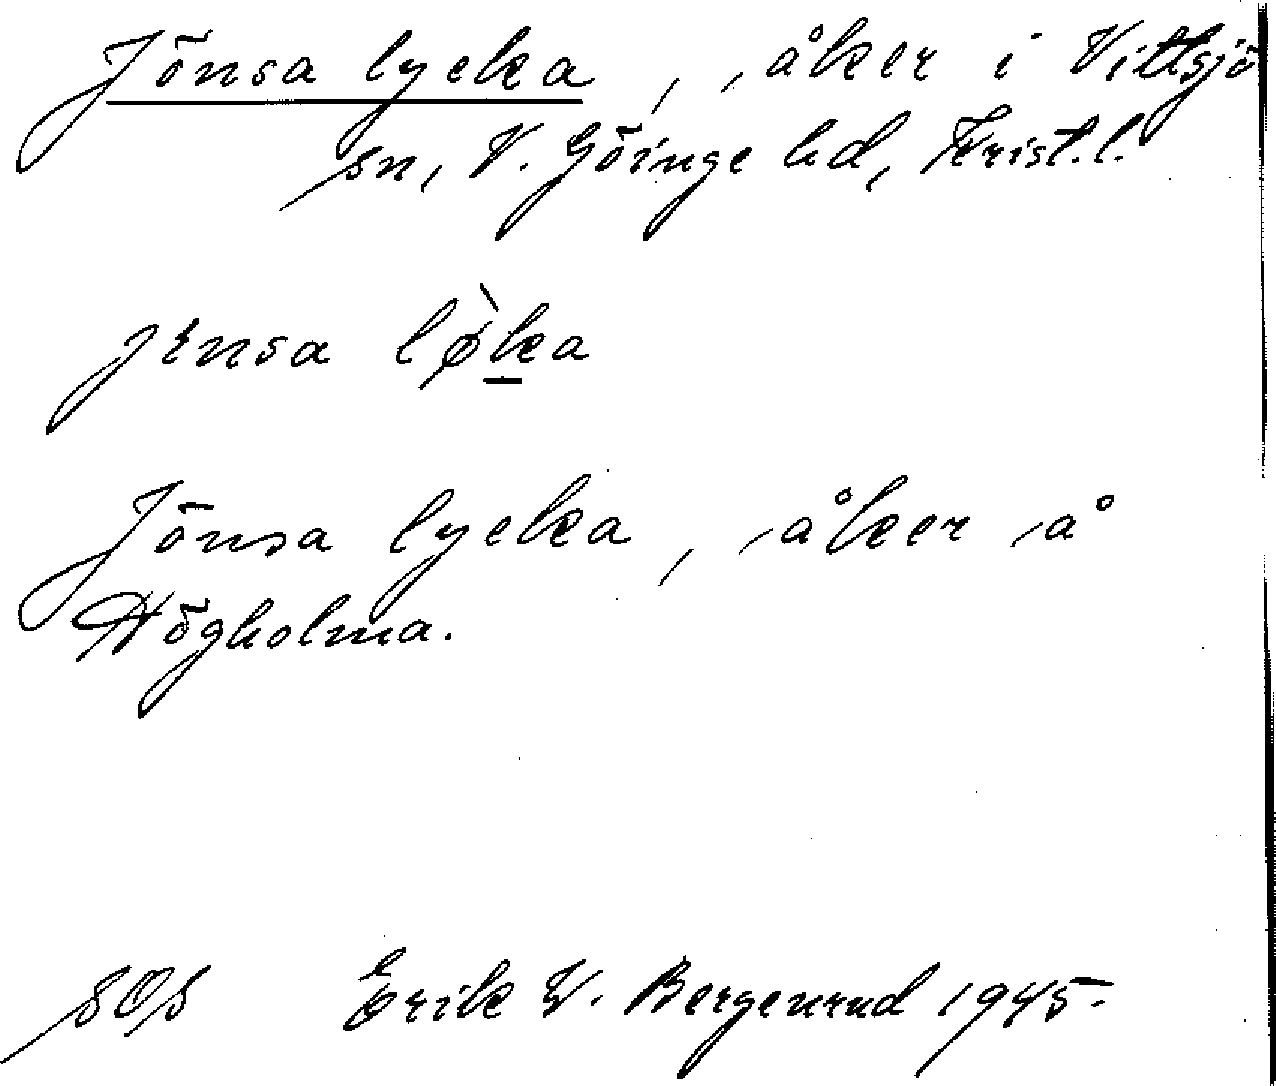 Jönsa lycka, åker i Vittsjö
sn, V. Göinge hd, Krist.l.
lø̀ka
Jönsa lycka, åker å
Högholma.
Erik W. Bergenrud 1945.